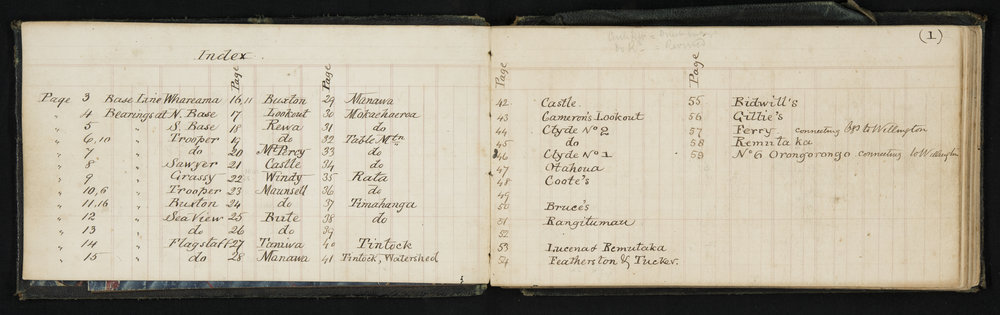 Index
Page Page
Page 3 Base Line Whareama 16,11 Buxton 29 Manawa
" 4 Bearings at N. Base 17 Lookout 30 Mokaehaerea
" 5 " S. Base 18 Rewa 31 do
" 6,10 " Trooper 19 do 32 Table Mtn
" 7 " do 20 Mt Percy 33 do
" 8 " Sawyer 21 Castle 34 do
" 9 " Grassy 22 Windy 35 Rata
" 10,6 " Trooper 23 Maunsell 36 do
" 11,16 " Buxton 24 do 37 Timahanga
" 12 " Sea View 25 Bute 38 do
" 13 " do 26 do 39
" 14 " Flagstaff 27 Taniwa 40 Tintock
" 15 " do 28 Manawa 41 Tintock, Watershed
(1)
Page Page
42 Castle 55 Bidwill's
43 Cameron's Lookout 56 Gillie's
44 Clyde No 2 57 Perry connecting Obs to Wellington
45 do 58 Remutaka
46 Clyde No 1 59 No 6 Orongorongo connecting to Wellington
47 Otahoua
48 Coote's
49
50 Bruce's
51 Rangitumau
52
53 Lucena & Remutaka
54 Featherston & Tucker.